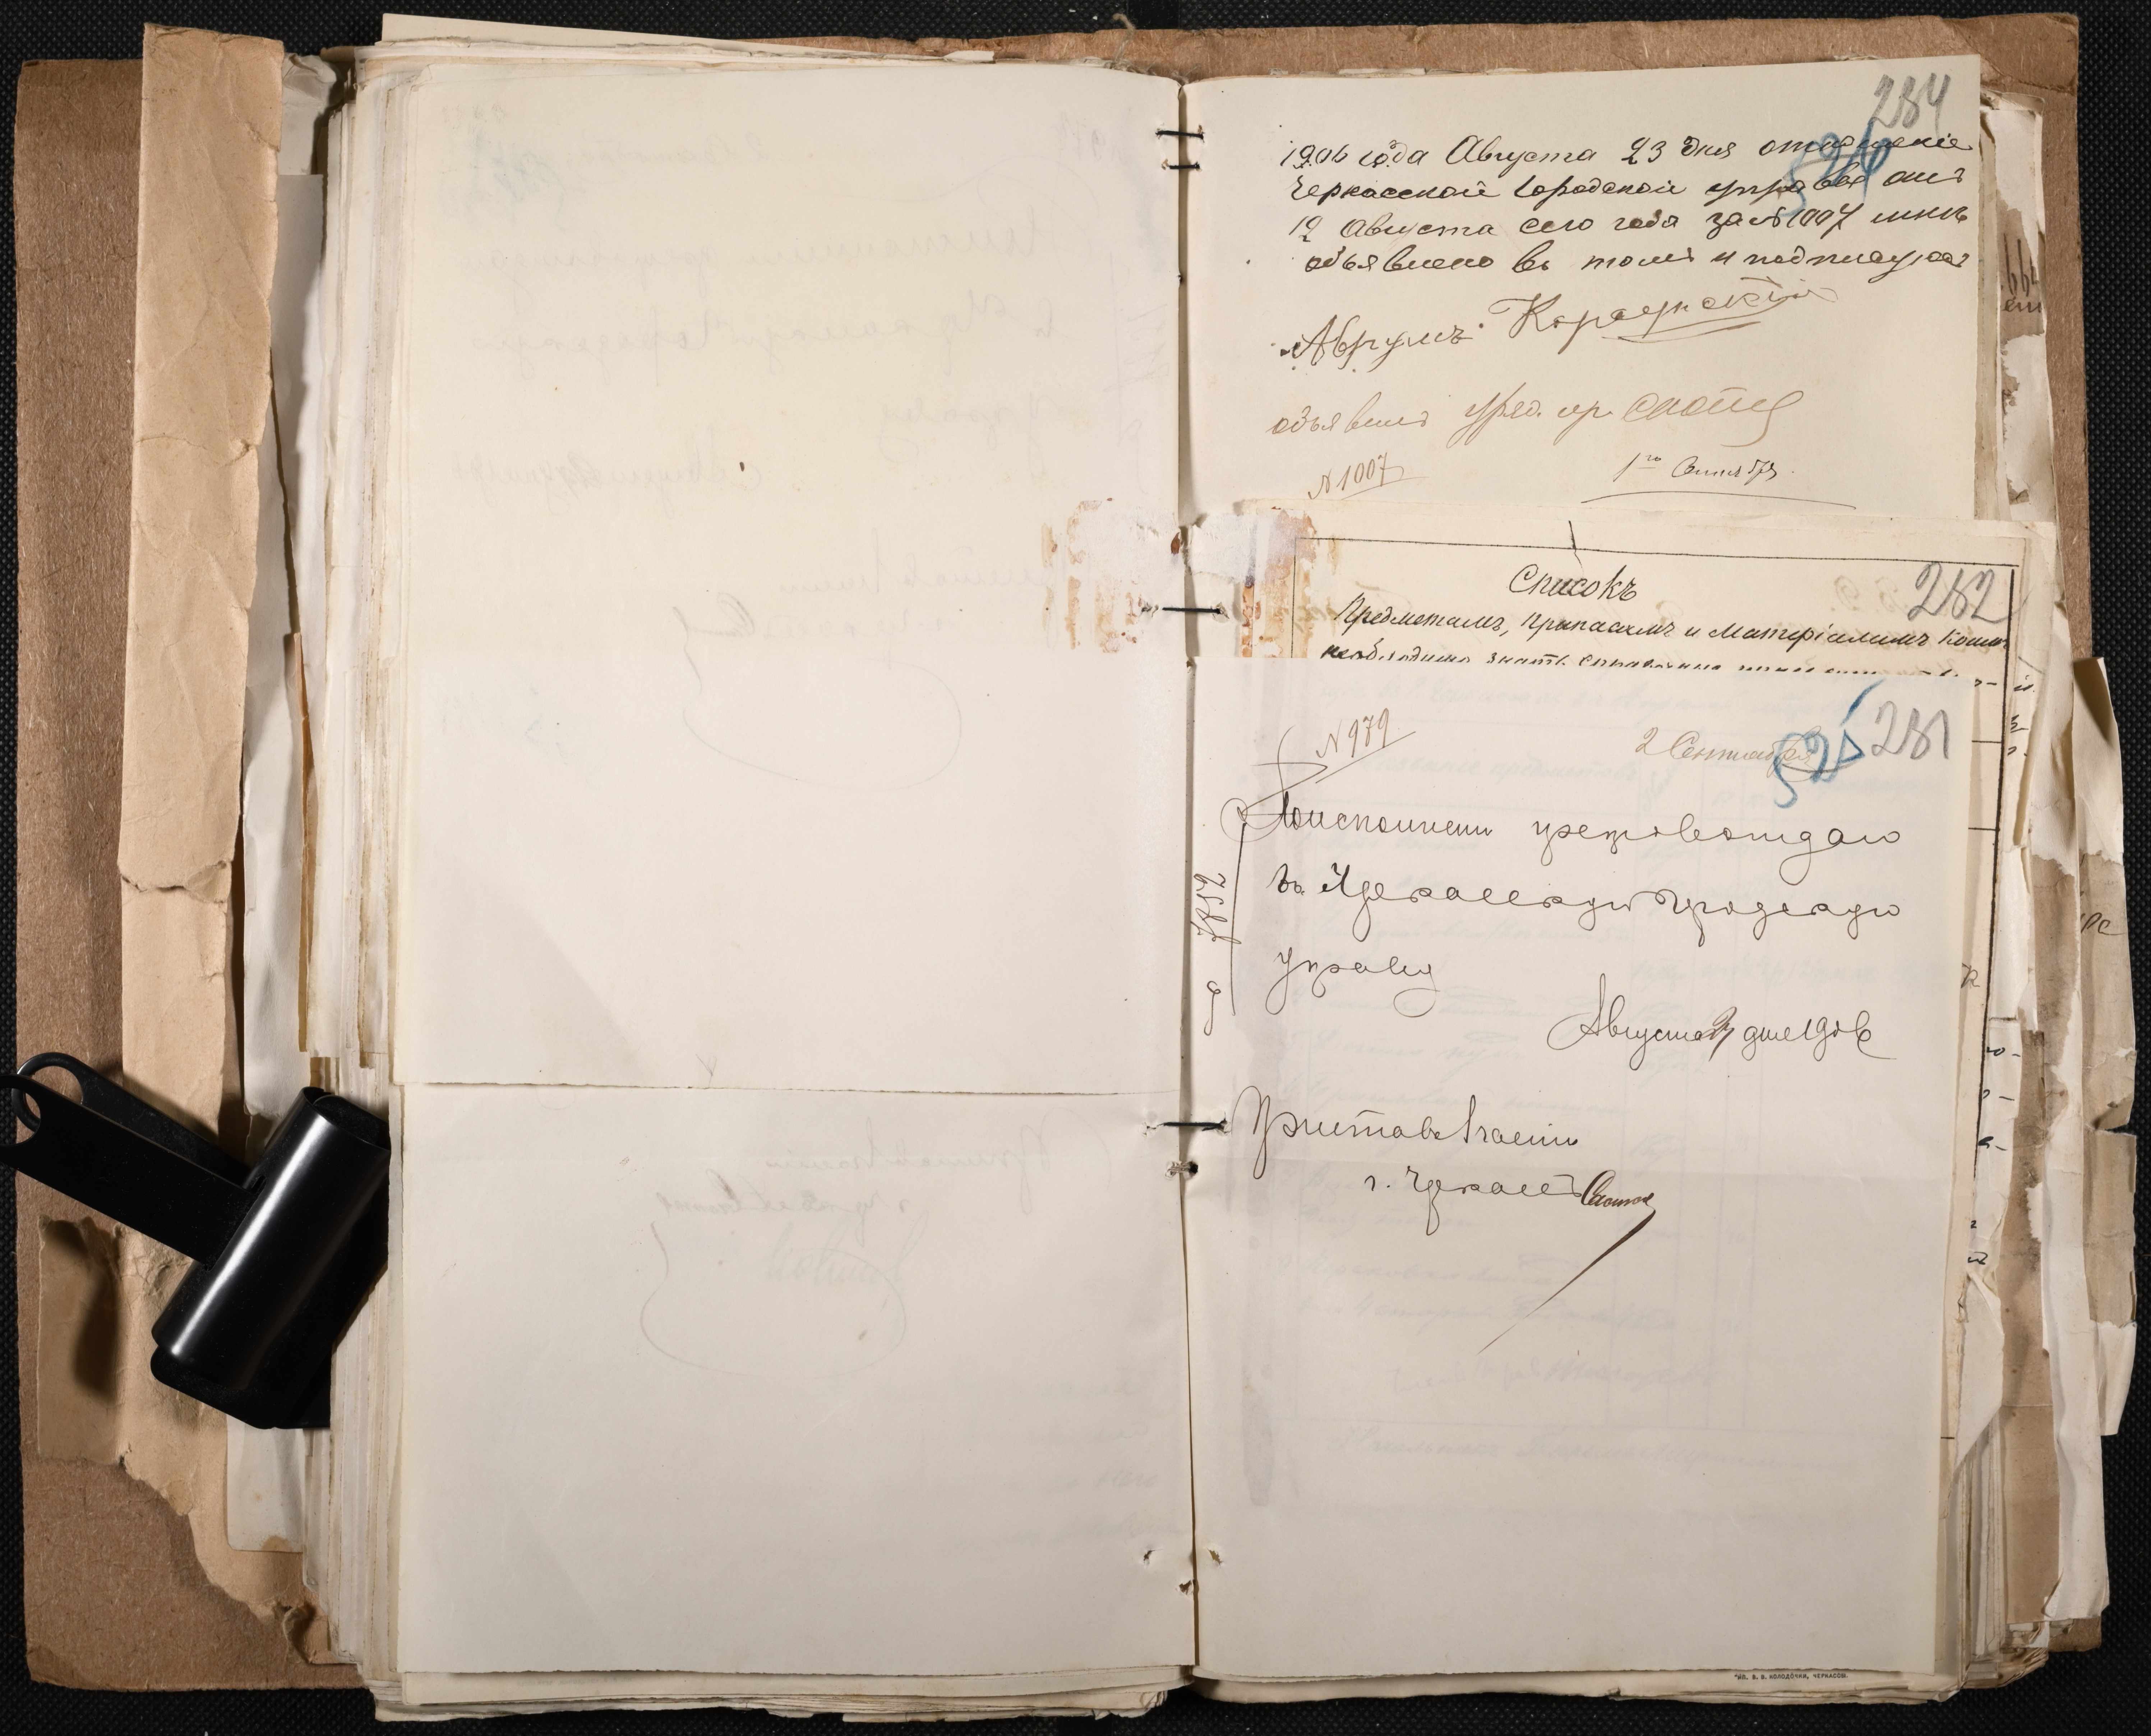 284
526
1906 года Августа 23 дня отношение
Черкасской Городской управы отъ
12 Августа сего года за №1007 мнѣ
объявлено въ томъ и подписуюсь
Аврумъ Карасунскій
объявилъ
№ 1007
1го Сентября.
Списокъ
282
Предметамъ, Припасамъ и Матеріаламъ коимъ
необходимо знать справочныя цены
№ 979
2 Сентября
525
281
По исполнении препровождаю
въ Черкасскую Городскую
Управу
Августа 29 дня 1906
7852
Приставъ 1 части
г. Черкассъ
ТИП. В. В. КОЛОДОЧКИ, ЧЕРКАССЫ.